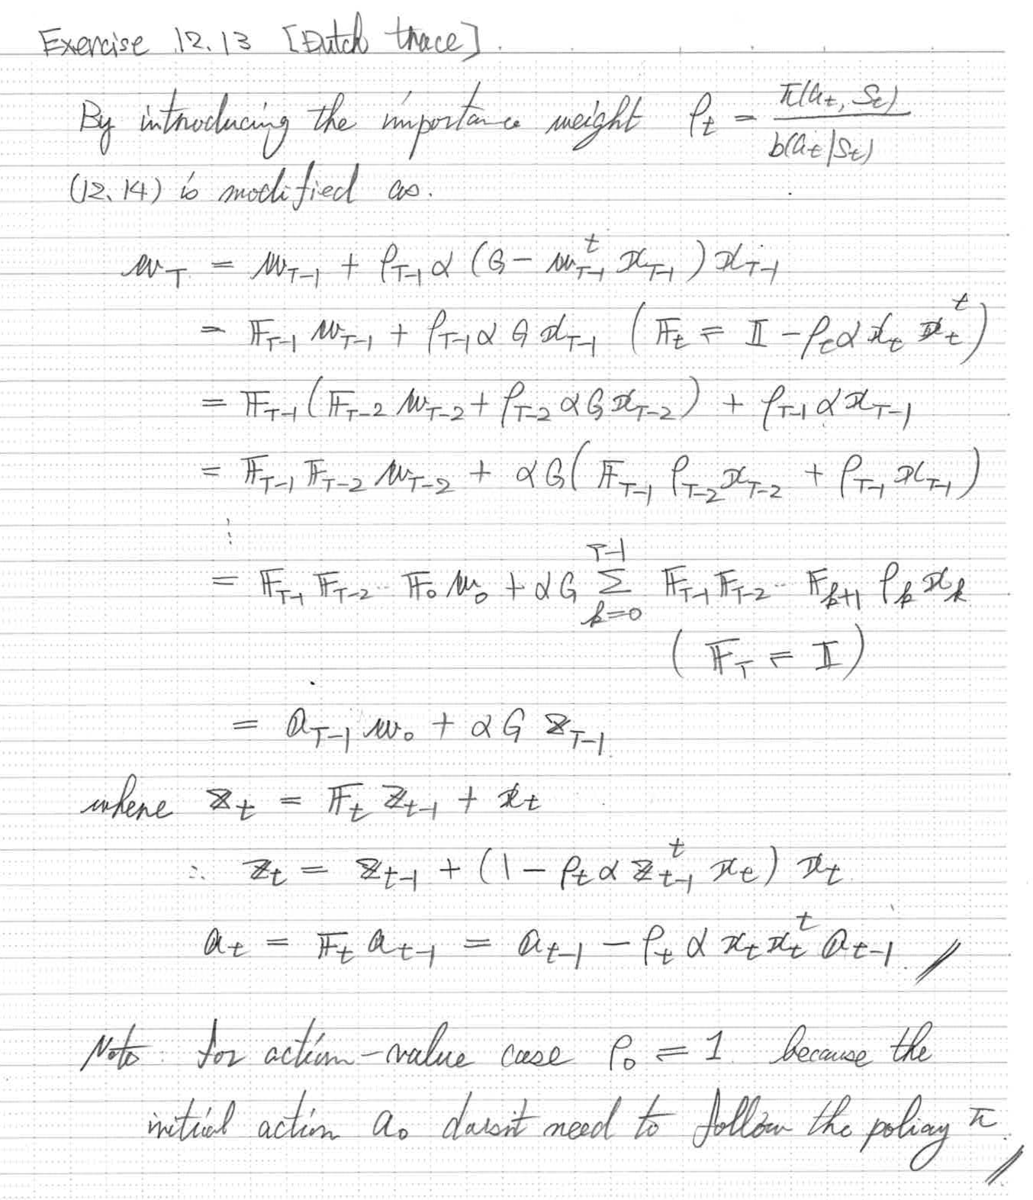 Exercise 12.13 [Dutch trace].
By introducing the importance weight ρ_t = π(a_t, S_t) / b(a_t|S_t)
(12.14) is modified as.
w_T = w_{T-1} + ρ_{T-1} α (G - w_{T-1}^t x_{T-1}) x_{T-1}
= F_{T-1} w_{T-1} + ρ_{T-1} α G x_{T-1} (F_t = I - ρ_t α x_t x_t^t)
= F_{T-1} (F_{T-2} w_{T-2} + ρ_{T-2} α G x_{T-2}) + ρ_{T-1} α x_{T-1}
= F_{T-1} F_{T-2} w_{T-2} + α G (F_{T-1} ρ_{T-2} x_{T-2} + ρ_{T-1} x_{T-1})
⋮
= F_{T-1} F_{T-2} ·· F_0 w_0 + α G Σ_{k=0}^{T-1} F_{T-1} F_{T-2} ·· F_{k+1} ρ_k x_k
(F_T = I)
= a_{T-1} w_0 + α G z_{T-1}
where z_t = F_t z_{t-1} + x_t
∴ z_t = z_{t-1} + (1 - ρ_t α z_{t-1}^t x_t) x_t
a_t = F_t a_{t-1} = a_{t-1} - ρ_t α x_t x_t^t a_{t-1} //
Note: for action-value case ρ_0 = 1 because the
initial action a_0 doesn't need to follow the policy π. //